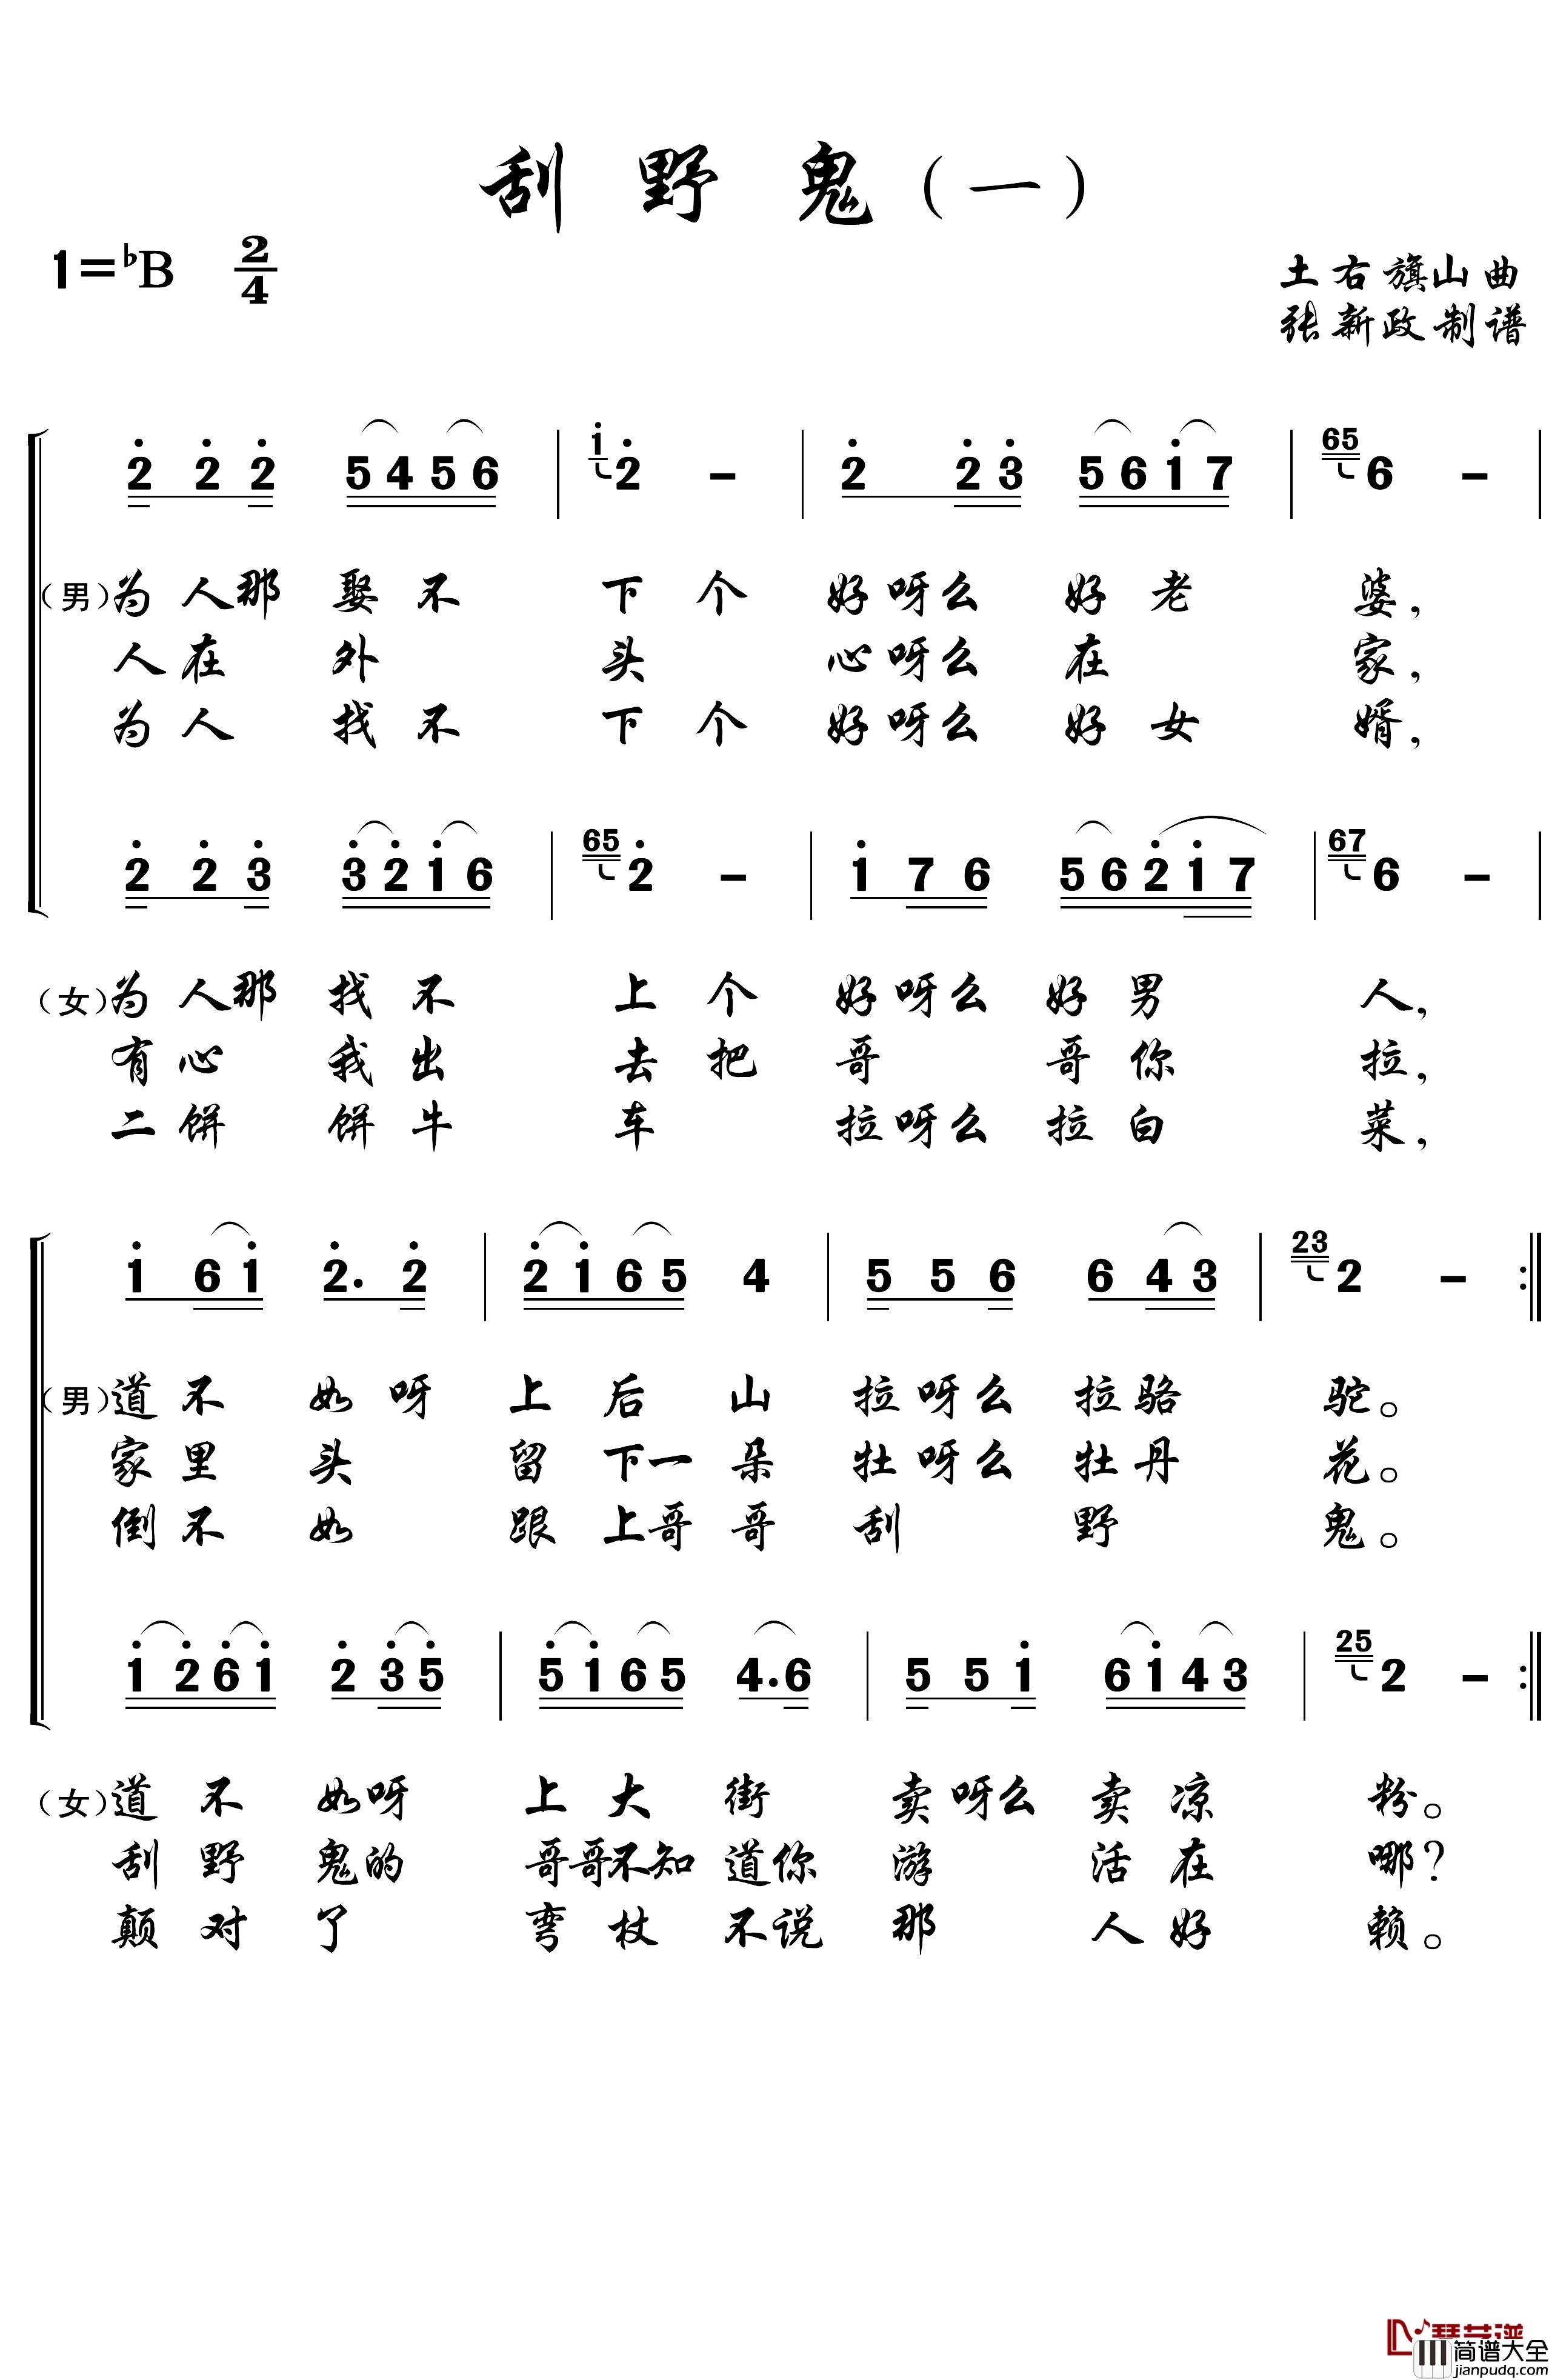 刮野鬼(一)
1=♭B 2/4
土右旗山曲
张新政制谱
2̇ 2̇ 2̇ 5 4 5 6 | 1̇ 2̇ - | 2̇ 2̇ 3̇ 5 6 1̇ 7 | 65 6 - |
(男)为人那娶不下个好呀么好老婆,
人在外头心呀么在家,
为人找不下个好呀么好女婿,
2̇ 2̇ 3̇ 3̇ 2̇ 1̇ 6 | 65 2̇ - | 1̇ 7 6 5 6 2̇ 1̇ 7 | 67 6 - |
(女)为人那找不上个好呀么好男人,
有心我出去把哥哥你拉,
二饼饼牛车拉呀么拉白菜,
1̇ 6 1̇ 2̇. 2̇ | 2̇ 1̇ 6 5 4 | 5 5 6 6 4 3 | 23 2 - :|
(男)道不如呀上后山拉呀么拉骆驼。
家里头留下一朵牡呀么牡丹花。
倒不如跟上哥哥刮野鬼。
1̇ 2̇ 6̇ 1̇ 2̇ 3̇ 5̇ | 5̇ 1̇ 6 5 4. 6 | 5 5 1̇ 6 1̇ 4 3 | 25 2 - :|
(女)道不如呀上大街卖呀么卖凉粉。
刮野鬼的哥哥不知道你游活在哪?
颠对了弯杖不说那人好赖。
简谱大全
jianpudq.com